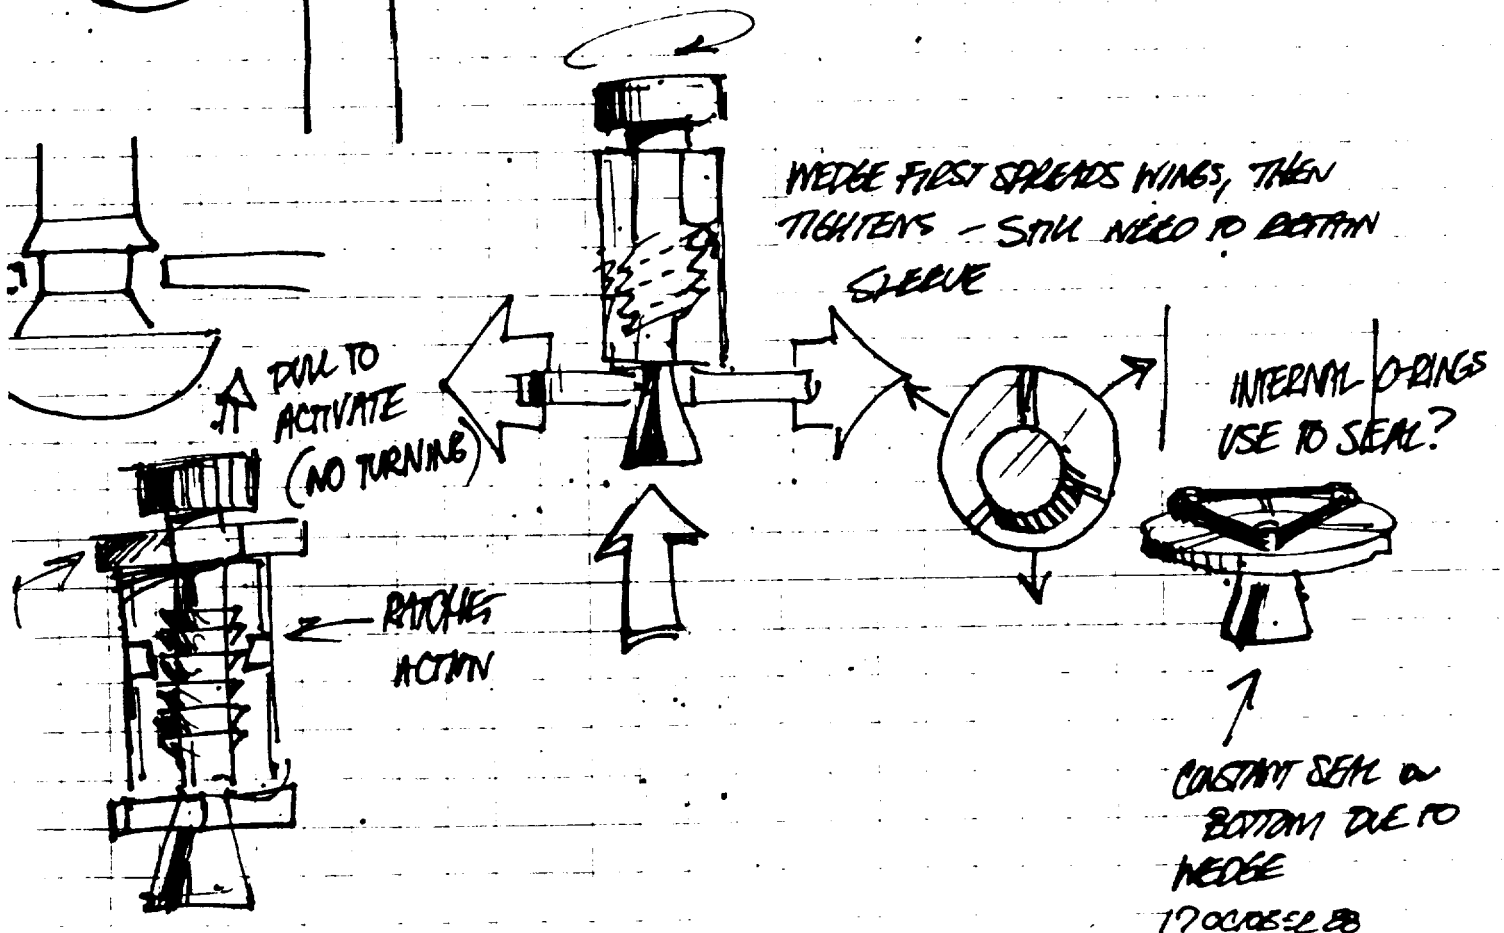 WEDGE FIRST SPREADS WINGS, THEN
TIGHTENS - STILL NEED TO RETAIN
SLEEVE
PULL TO
ACTIVATE
(NO TURNING)
INTERNAL O-RINGS
USE TO SEAL?
RATCHET
ACTION
CONSTANT SEAL ON
BOTTOM DUE TO
WEDGE
17 OCTOBER 88